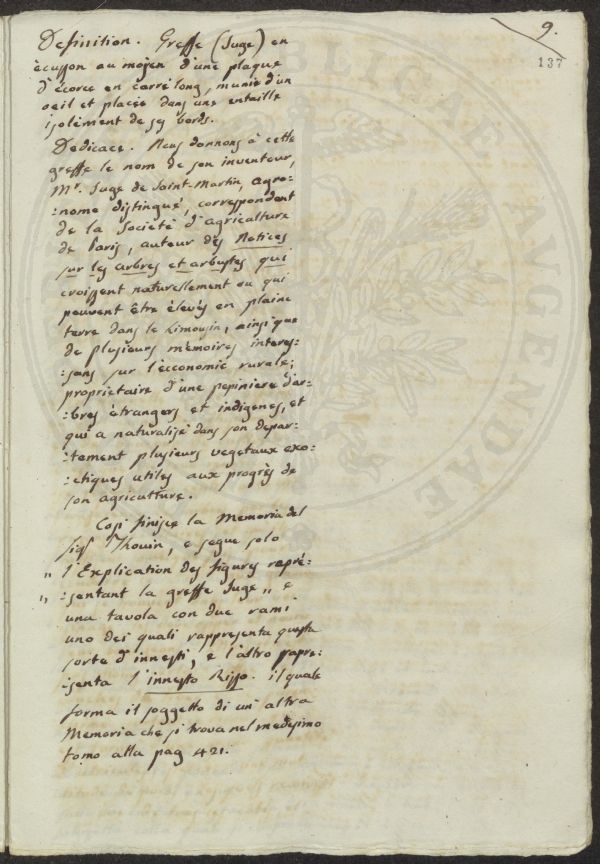 9.
137
Definition. Greffe (Juge) en
ècusson au moyen d'une plaque
d'écorce en carré long, munie d'un
oeil et placée dans une entaille
isolèment de ses bords.
Dedicace. Nous donnons à cette
greffe le nom de son inventeur,
Mr. Juge de Saint-Martin, agro:
:nome distingué, correspondant
de la Société d'agriculture
de Paris, auteur des Notices
sur les arbres et arbustes qui
croissent naturellement ou qui
peuvent être élevés en pleine
terre dans le Limousin, ainsi que
de plusieurs mèmoires interes:
:sans sur l'èconomie rurale;
proprietaire d'une pepiniere d'ar:
:bres ètrangers et indigenes, et
qui a naturalisè dans son depar:
:tement plusieurs vegetaux exo:
:tiques utiles aux progrès de
son agriculture.
Così finisce la Memoria del
Sigr Thouin, e segue solo
„ l'Explication des figures reprè:
„ :sentant la greffe Juge „ e
una tavola con due rami
uno dei quali rappresenta questa
sorte d'innesti, e l'altro rapre:
:senta l'innesto Risso. il quale
forma il soggetto di un'altra
Memoria che si trova nel medesimo
tomo alla pag 421.